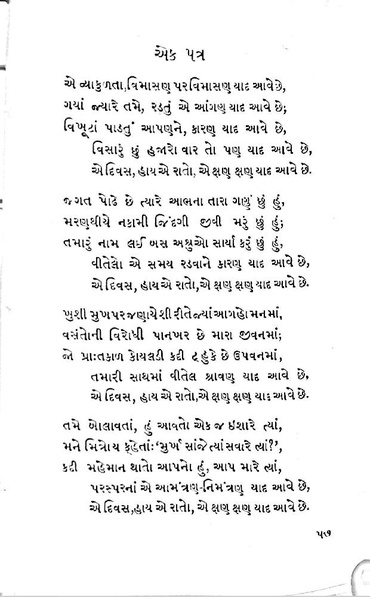 એક પત્ર
એ વ્યાકુળતા,વિમાસણ પર વિમાસણ યાદ આવે છે,
ગયાં જ્યારે તમે, રડતું એ આંગણ યાદ આવે છે;
વિખૂટાં પાડતું આપણુને, કારણ યાદ આવે છે,
વિસારું છું હજારો વાર તો પણ યાદ આવે છે,
એ દિવસ, હાય એ રાતો, એ ક્ષણ ક્ષણ યાદ આવે છે.
જગત પોઢે છે ત્યારે આભના તારા ગણું છું હું,
મરણથીયે નકામી જિંદગી જીવી મરું છું હું;
તમારું નામ લઈ બસ અશ્રુઓ સાર્યા કરું છું હું,
વીતેલો એ સમય રડવાને કારણ યાદ આવે છે,
એ દિવસ, હાય એ રાતો, એ ક્ષણ ક્ષણ યાદ આવે છે.
ખુશી સુખ પર જણાયે શી રીતે જ્યાં આગ હો મનમાં,
વસંતોની વિરોધી પાનખર છે મારા જીવનમાં;
જો પ્રાતઃકાળ કોયલડી કદી ટહુકે છે ઉપવનમાં,
તમારી સાથમાં વીતેલ શ્રાવણ યાદ આવે છે,
એ દિવસ, હાય એ રાતો, એ ક્ષણ ક્ષણ યાદ આવે છે.
તમે બોલાવતાં, હું આવતો એક જ ઇશારે ત્યાં,
મને મિત્રોય કહેતાઃ 'મુર્ખ સાંજે ત્યાં સવારે ત્યાં?',
કદી મહેમાન થાતો આપનો હું, આપ મારે ત્યાં,
પરસ્પરનાં એ આમંત્રણ-નિમંત્રણ યાદ આવે છે,
એ દિવસ,હાય એ રાતો, એ ક્ષણ ક્ષણ યાદ આવે છે.
૫૭